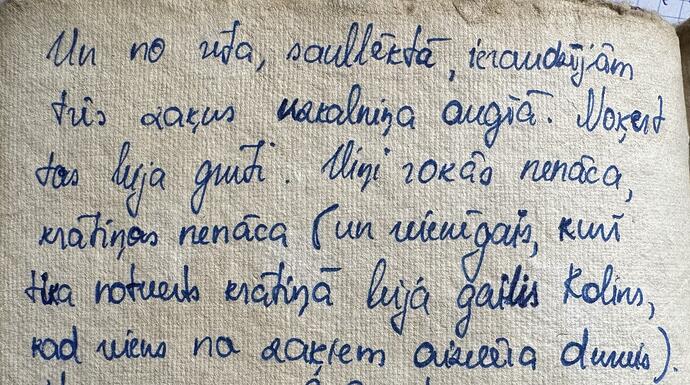 Un no rīta, saullēktā, ieraudzījām
trīs zaķus uzkalniņa augšā. Noķert
tos bija grūti. Viņi rokās nenāca,
krātiņos nenāca (un vienīgais, kurš
tika notverts krātiņā bija gailis Kolins,
kad viens no zaķiem aizvēra durvis).